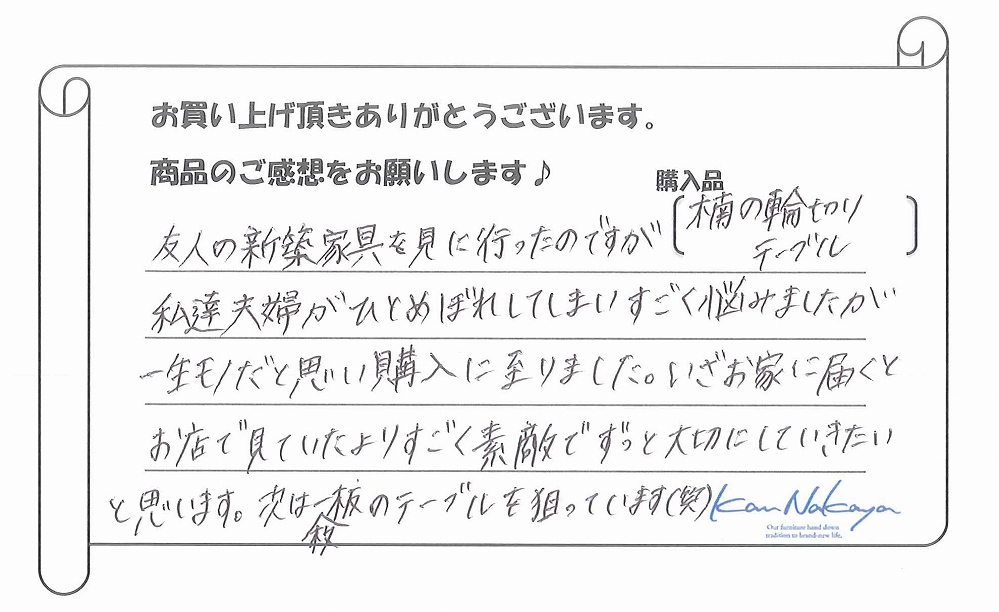 お買い上げ頂きありがとうございます。
商品のご感想をお願いします♪
購入品
楠の輪切り
テーブル
友人の新築家具を見に行ったのですが
私達夫婦がひとめぼれしてしまいすごく悩みましたが
一生モノだと思い購入に至りました。いざお家に届くと
お店で見ていたよりすごく素敵でずっと大切にしていきたい
と思います。次は一枚板のテーブルを狙っています(笑)
Kan Nakaya
Our furniture hand down
tradition to brand-new life.